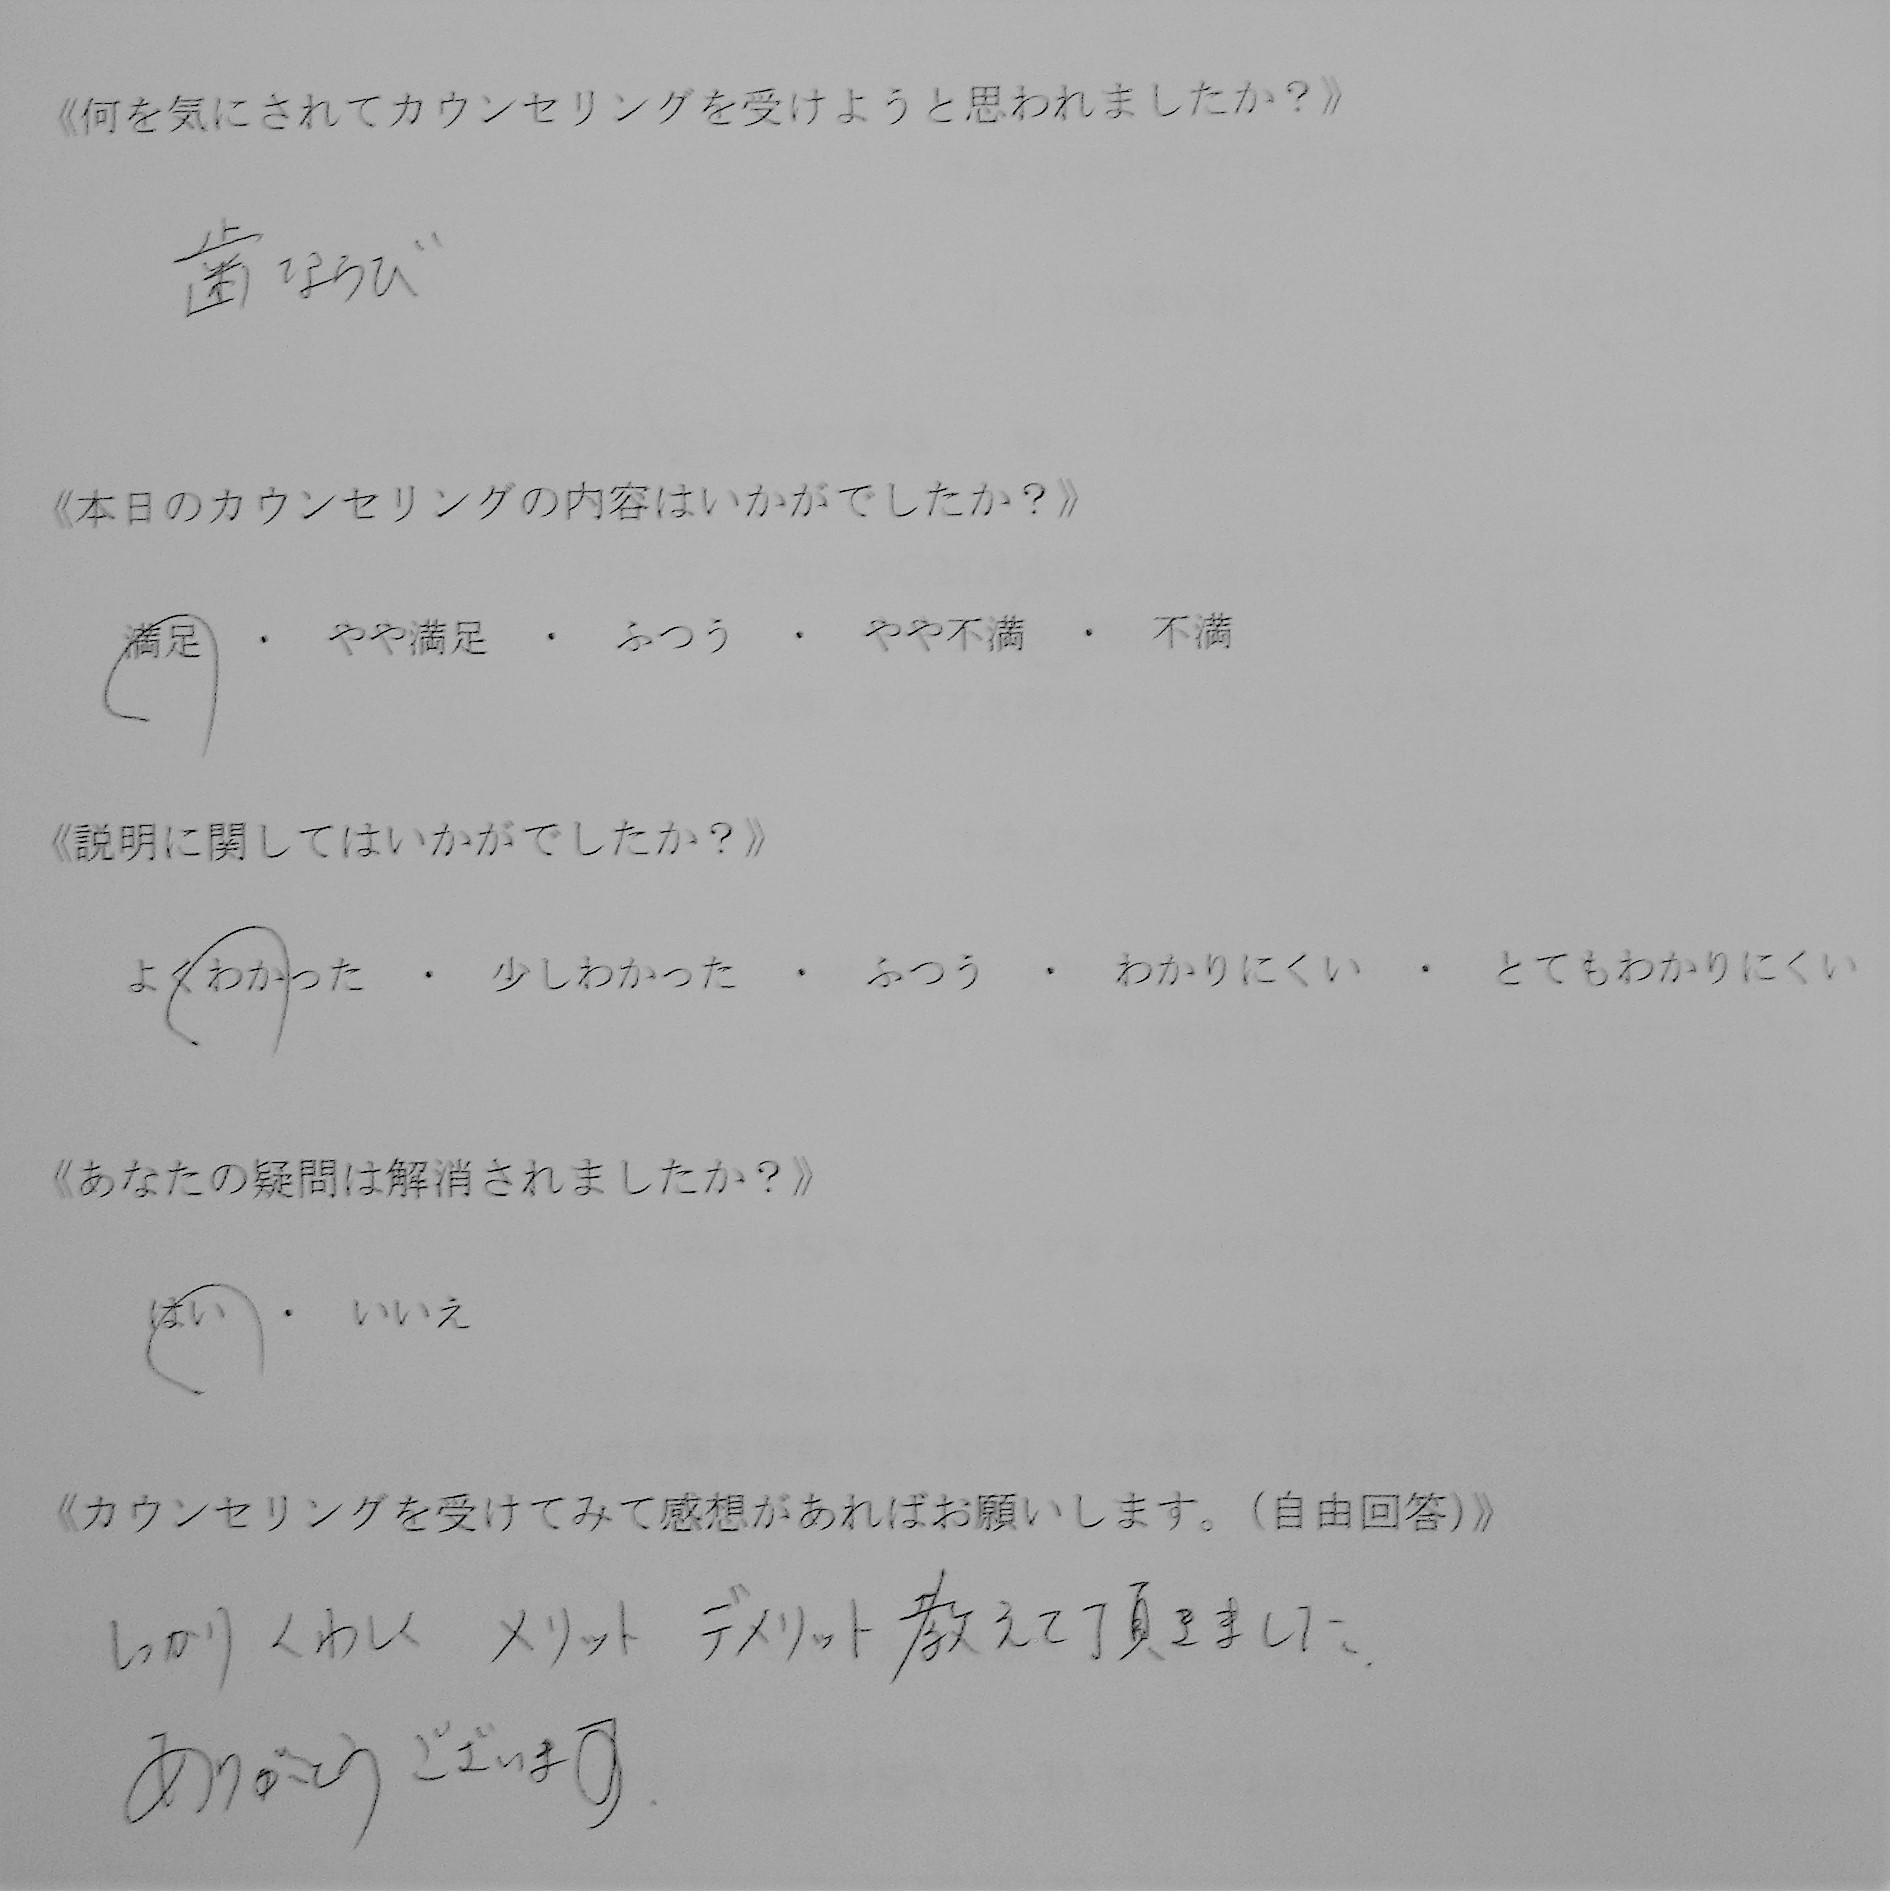 《何を気にされてカウンセリングを受けようと思われましたか？》
歯ならび
《本日のカウンセリングの内容はいかがでしたか？》
満足　・　やや満足　・　ふつう　・　やや不満　・　不満
《説明に関してはいかがでしたか？》
よくわかった　・　少しわかった　・　ふつう　・　わかりにくい　・　とてもわかりにくい
《あなたの疑問は解消されましたか？》
はい　・　いいえ
《カウンセリングを受けてみて感想があればお願いします。（自由回答）》
しっかり くわしく メリット デメリット 教えて頂きました.
ありがとうございます.